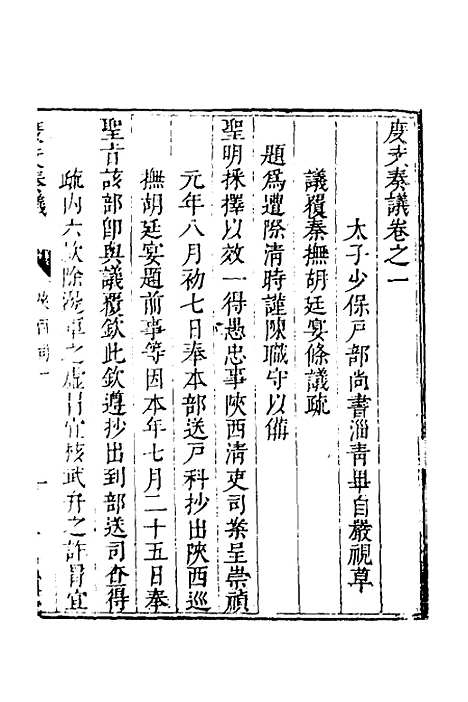 度支奏議卷之一
太子少保戶部尚書淄青畢自嚴視草
議覆秦撫胡廷宴條議疏
題為遭際清時謹陳職守以備
聖明採擇以效一得愚忠事陝西清吏司案呈崇禎
元年八月初七日奉本部送戶科抄出陝西巡
撫胡廷宴題前事等因本年七月二十五日奉
聖旨該部即與議覆欽此欽遵抄出到部送司查得
疏內六款除
之虛冒宜核武弁之許冒宜
度支奏議
陝西司一